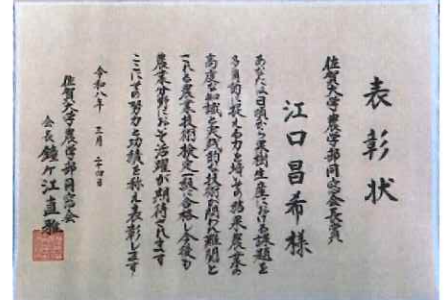 表彰状
佐賀大学農学部同窓会長賞
江口昌希様
あなたは日頃から果樹生産における課題を
多角的に捉える力を培いその結果農業の
高度な知識と実践的な技術が問われ難関と
される農業技術検定一級に合格し今後も
農業分野においてその活躍が期待されます
ここにその努力と功績を称え表彰します
令和八年 三月 二十四日
佐賀大学農学部同窓会
会長 鐘ヶ江直雅